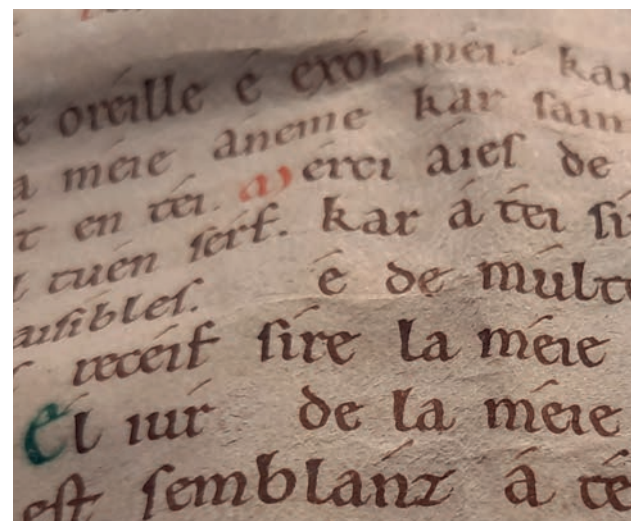 oreille é exoi mei. kar
meie áneme kar
en tei. Merci aies de
tuen serf. kar á tei
aisibles. é de mult
receif sire la meie
El iur de la meie
est semblanz á te